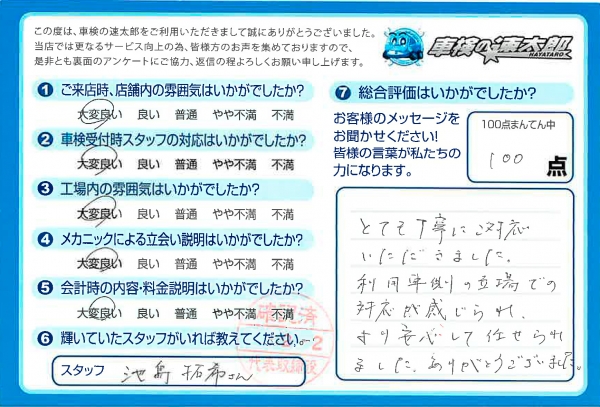 この度は、車検の速太郎をご利用いただきまして誠にありがとうございました。
当店では更なるサービス向上の為、皆様方のお声を集めておりますので、
是非とも裏面のアンケートにご協力、返信の程よろしくお願い申し上げます。
車検の速太郎
HAYATARO
1 ご来店時、店舗内の雰囲気はいかがでしたか?
大変良い 良い 普通 やや不満 不満
2 車検受付時スタッフの対応はいかがでしたか?
大変良い 良い 普通 やや不満 不満
3 工場内の雰囲気はいかがでしたか?
大変良い 良い 普通 やや不満 不満
4 メカニックによる立会い説明はいかがでしたか?
大変良い 良い 普通 やや不満 不満
5 会計時の内容・料金説明はいかがでしたか?
大変良い 良い 普通 やや不満 不満
6 輝いていたスタッフがいれば教えてください。
スタッフ 池島 拓希さん
確認済
代表取締役
7 総合評価はいかがでしたか?
お客様のメッセージを
お聞かせください!
皆様の言葉が私たちの
力になります。
100点まんてん中
100 点
とても丁寧に対応
いただきました。
利用車側の立場での
対応が感じられ、
より安心して任せられ
ました。ありがとうございました。